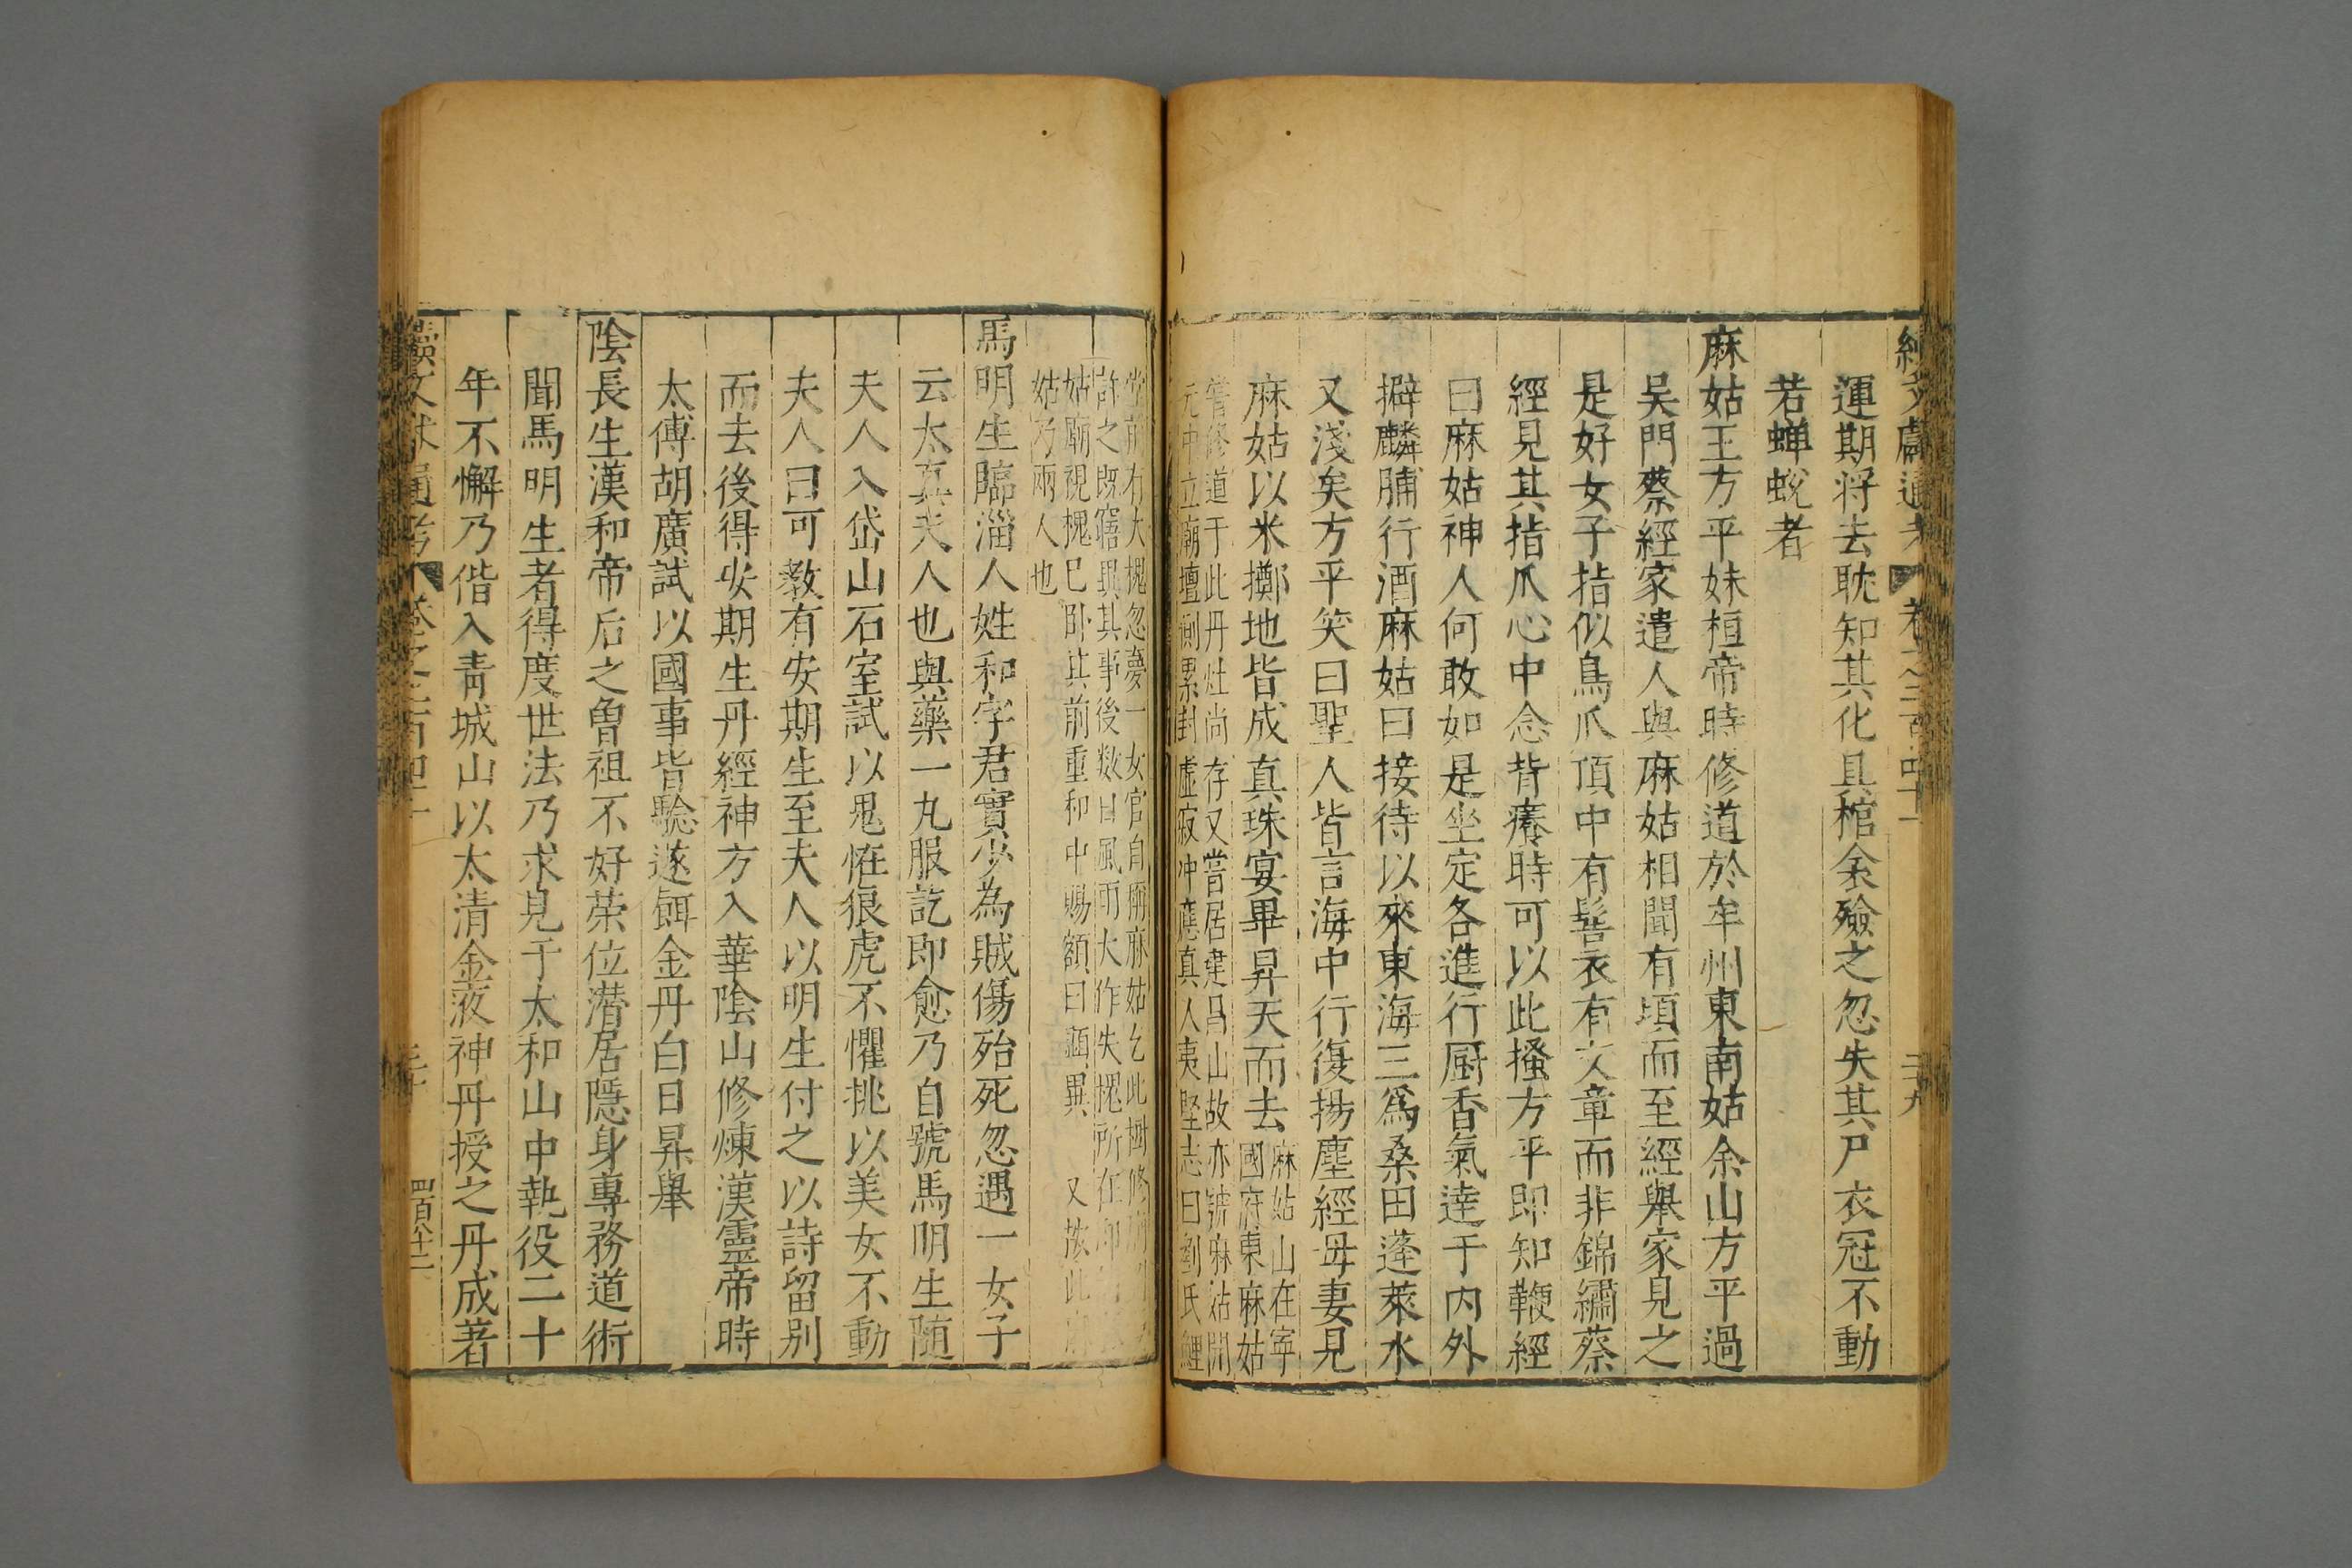 續文獻通考 卷之二百四十一 二十九
運期將去耽知其化具棺衾殮之忽失其尸衣冠不動
若蟬蛻者
麻姑王方平妹桓帝時修道於牟州東南姑余山方平過
吳門蔡經家遣人與麻姑相聞有頃而至經舉家見之
是好女子指似鳥爪頂中有髻衣有文章而非錦繡蔡
經見其指爪心中念背癢時可以此搔方平即知鞭經
曰麻姑神人何敢如是坐定各進行厨香氣達于内外
擗麟脯行酒麻姑曰接待以來東海三爲桑田蓬萊水
又淺矣方平笑曰聖人皆言海中行復揚塵經母妻見
麻姑以米擲地皆成真珠宴畢昇天而去麻姑山在寧
國府東麻姑
嘗修道于此丹灶尚存又嘗居建昌山故亦號麻姑開
元中立廟壇側累封虛寂冲應真人夷堅志曰劉氏鯉
堂前有大槐忽夢一女官自稱麻姑乞此樹修
許之既寤異其事後数日風雨大作失槐所在即
姑廟視槐已卧其前重和中賜額曰 異 又按此
姑乃兩人也
馬明生臨淄人姓和字君實少為賊傷殆死忽遇一女子
云太真夫人也與藥一丸服訖即愈乃自號馬明生随
夫人入岱山石室試以鬼恠狼虎不懼挑以美女不動
夫人曰可教有安期生至夫人以明生付之以詩留别
而去後得安期生丹經神方入華陰山修煉漢靈帝時
太傅胡廣試以國事皆驗遂餌金丹白日昇舉
陰長生漢和帝后之曾祖不好荣位潛居隱身專務道術
聞馬明生者得度世法乃求見于太和山中執役二十
年不懈乃偕入青城山以太清金液神丹授之丹成著
續文獻通考 卷之二百四十一 三十 四百八十二